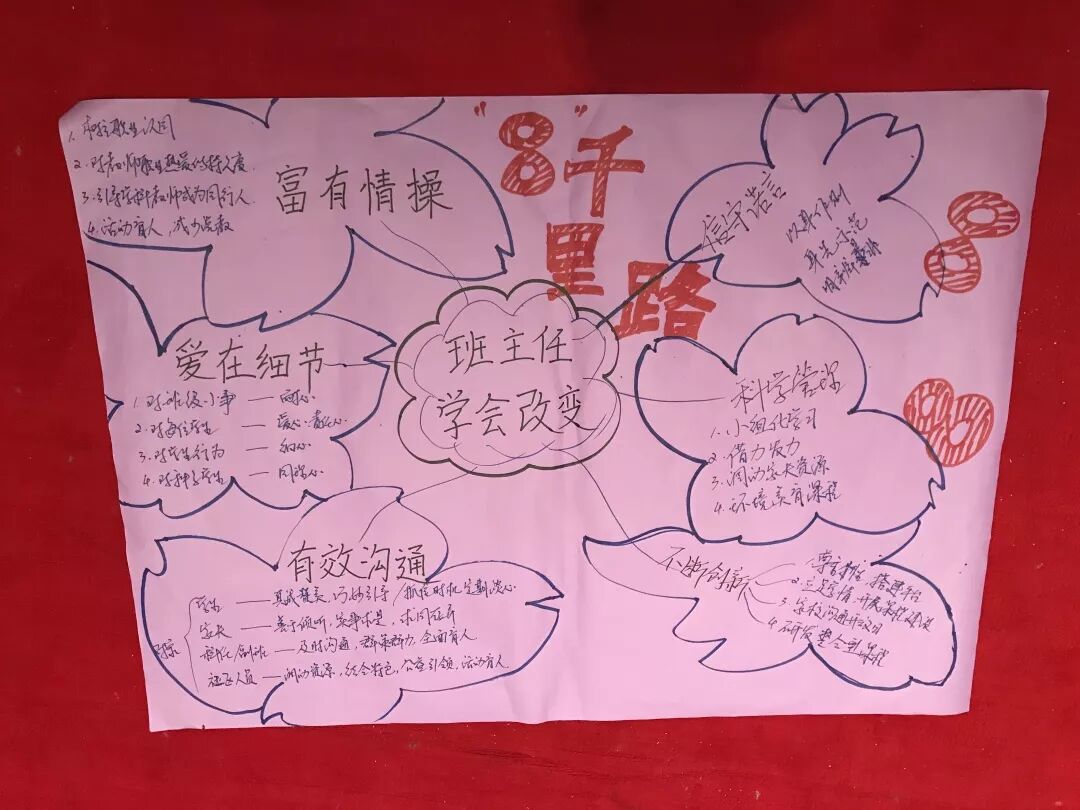 "8"千
里
路
班主任
学会改变
富有情操
1. 职业认同
2. 对教师职业热爱的持久度
3. 引导学科教师成为同行人
4. 活动育人,减少说教
信守诺言
以身作则
身先示范
爱在细节
1. 对班级小事 — 耐心
2. 对每位学生 — 爱心
3. 对学生行为 — 细心
4. 对种子学生 — 同理心
科学管理
1. 小组化学习
2. 借力发力
3. 调动家长资源
4. 环境美育课程
有效沟通
学生 — 真诚赞美,巧妙引导 抓住时机定期谈心
家长 — 善于倾听,实事求是,求同存异
及时沟通,群策群力,全面育人
社区人员 — 调动资源,结合特色,公益引领,活动育人
不断创新
搭建平台
2. 立足学情,开展
3. 家校沟通
4. 研发整合型课程